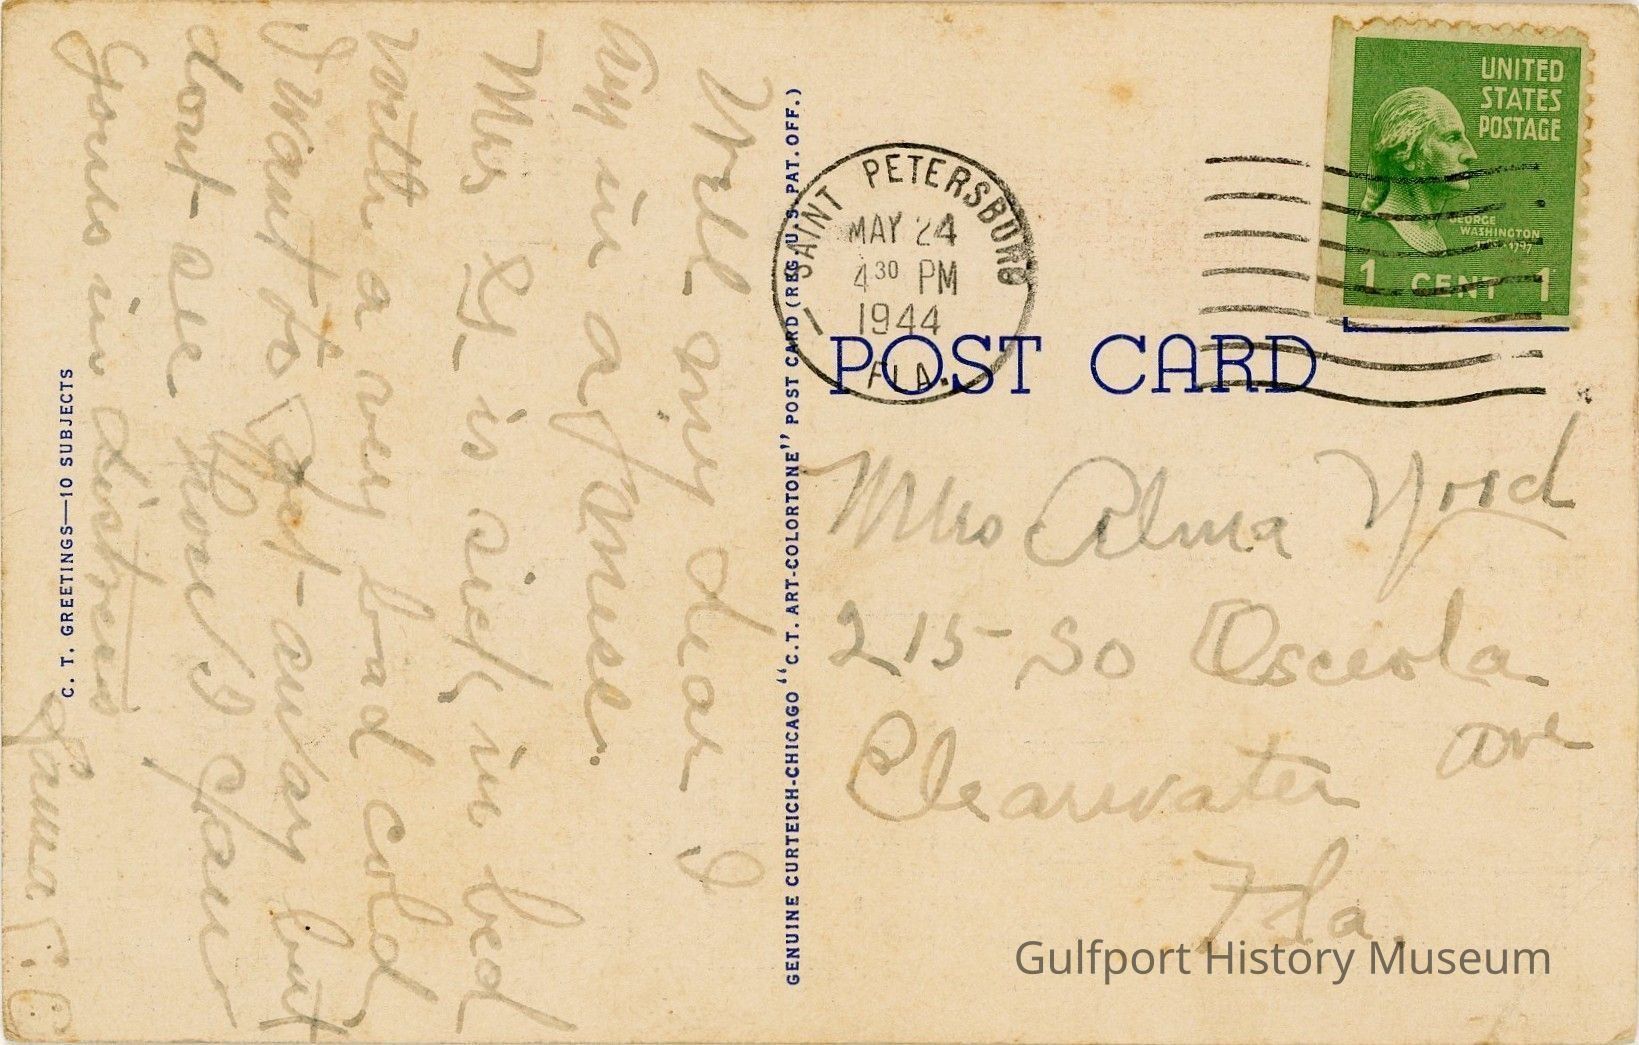 Well my dear I
am in a mess.
Mrs G is sick in bed
with a very bad cold
I want to get away but
dont see how I can
Yours in distress
C. T. GREETINGS—10 SUBJECTS
GENUINE CURTEICH-CHICAGO "C.T. ART-COLORTONE" POST CARD (REG. U.S. PAT. OFF.)
SAINT PETERSBURG
MAY 24
4 30 PM
1944
FLA.
UNITED
STATES
POSTAGE
GEORGE
WASHINGTON
1797
1 CENT 1
POST CARD
Mrs Alma
215 So Osceola
Ave
Clearwater
Fla.
Gulfport History Museum